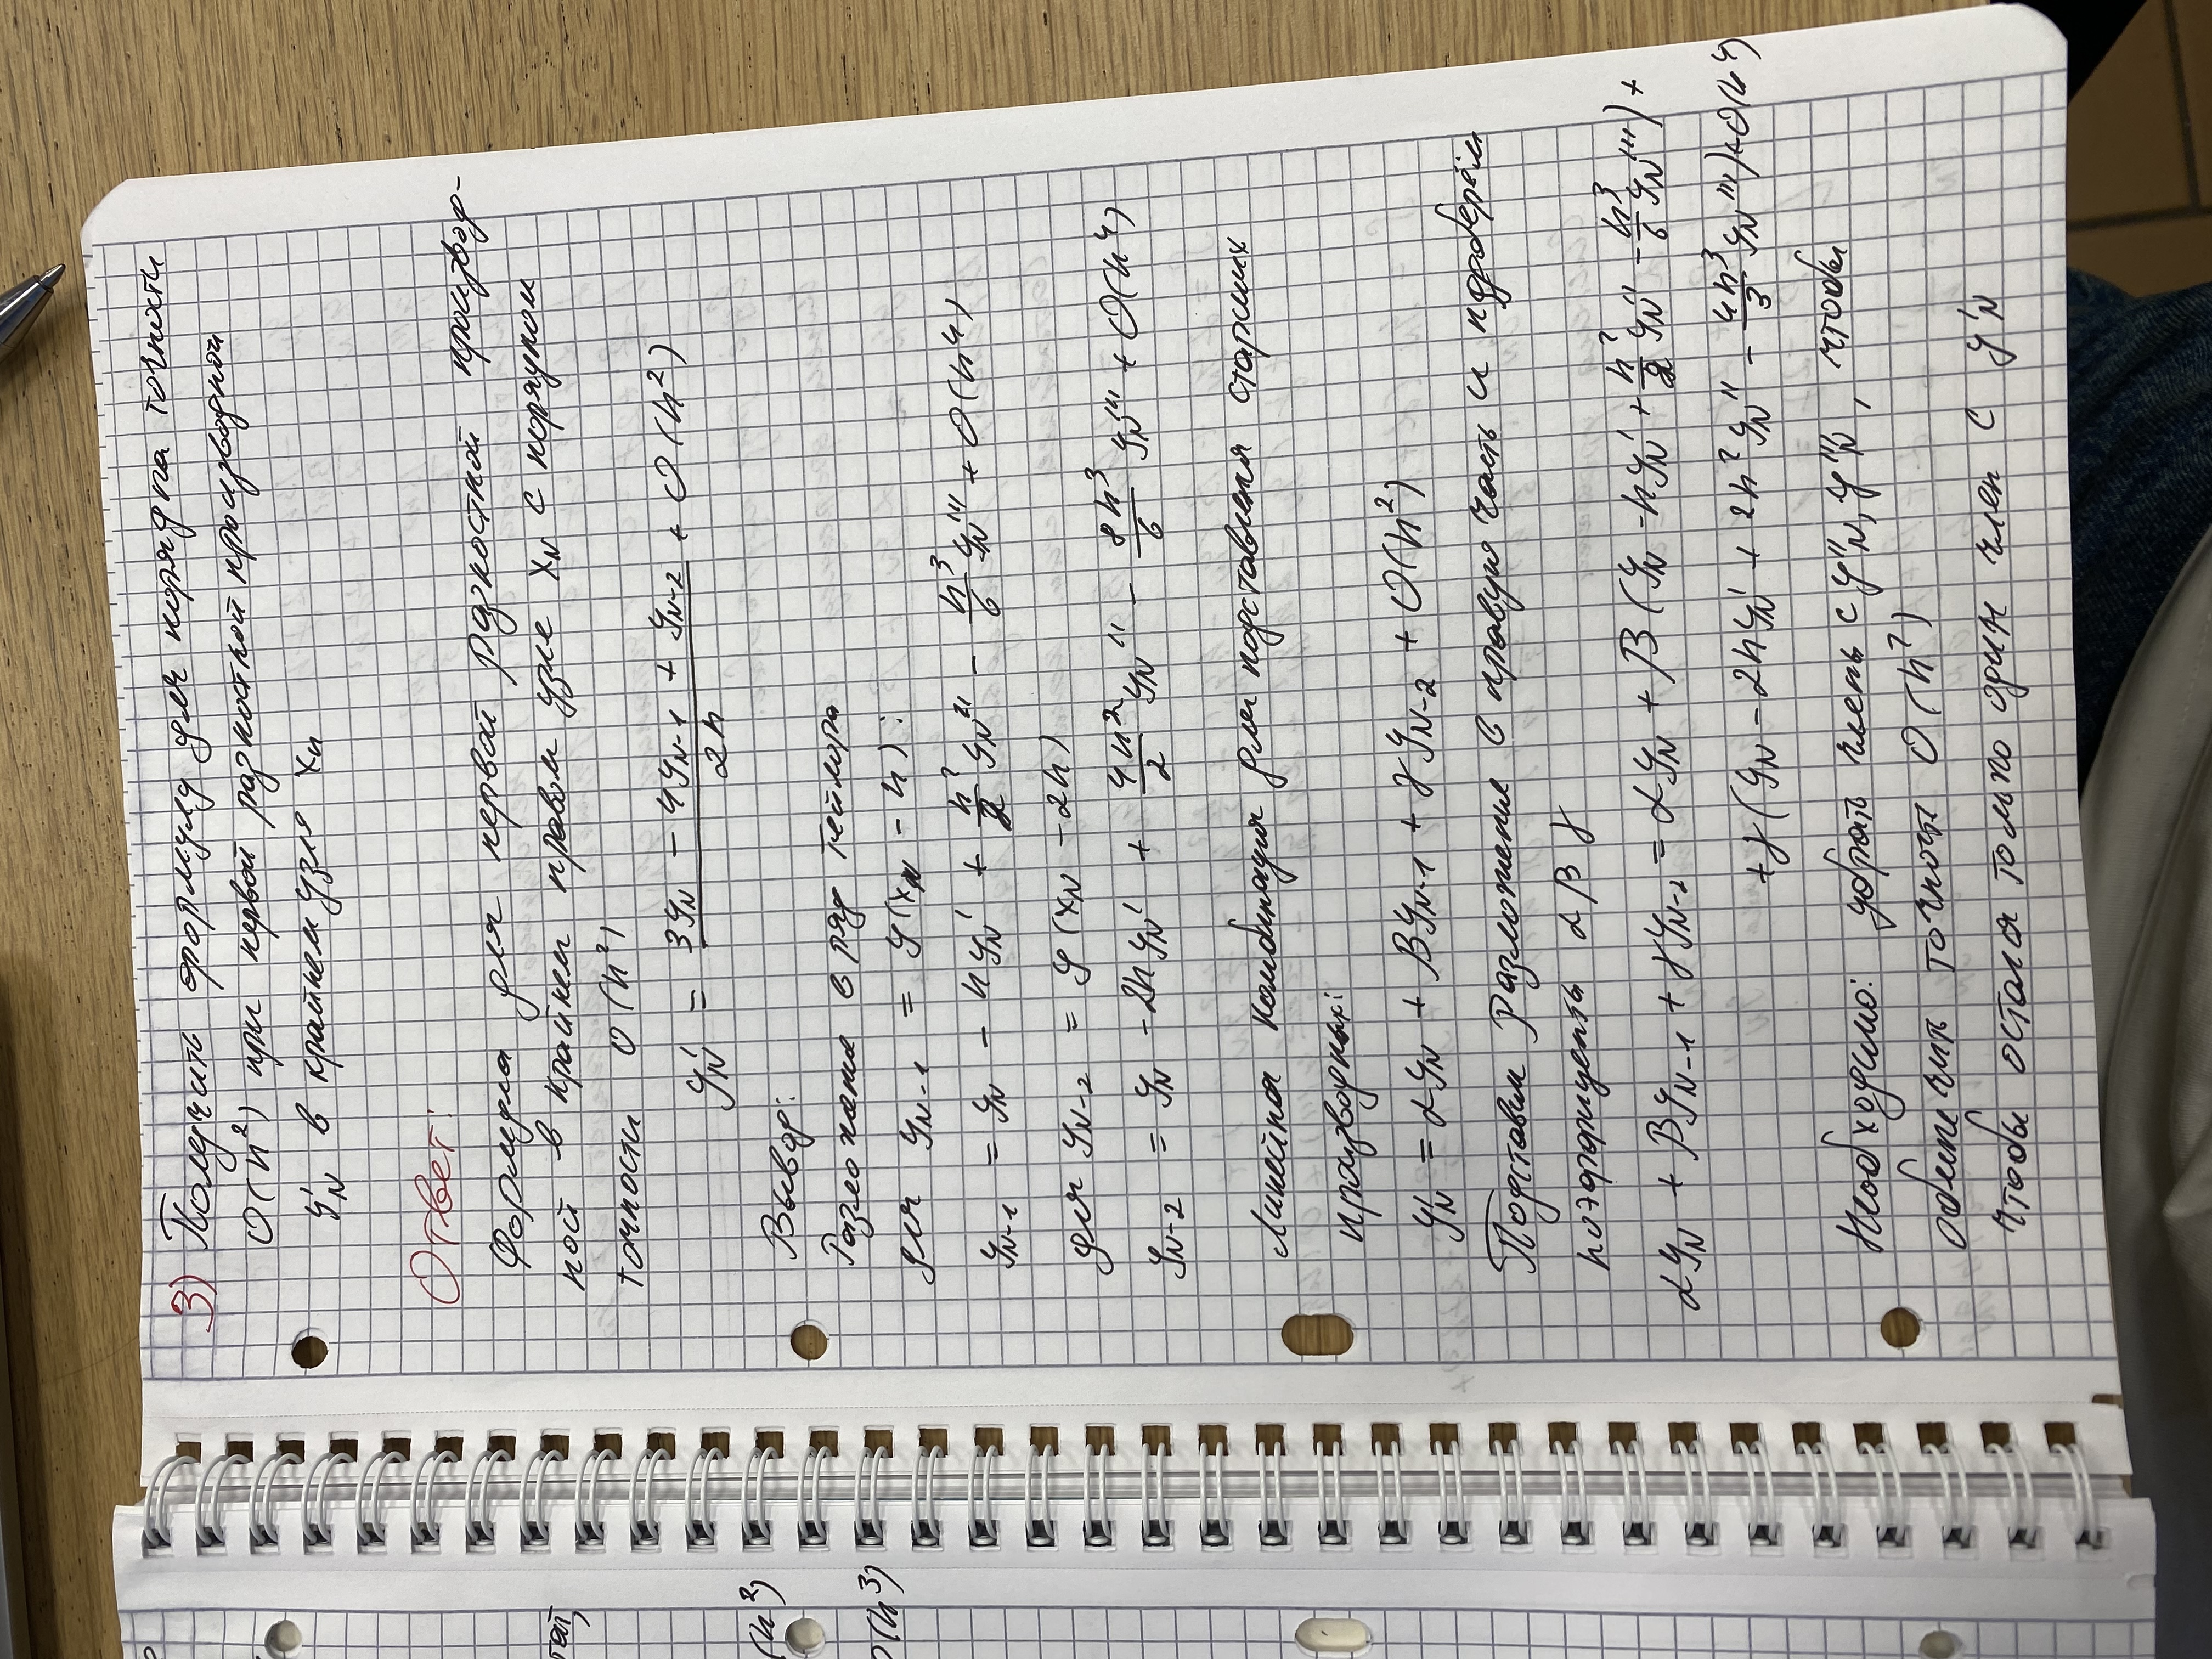 3) Получить формулу для порядка точности
O(h²) при первой разностной производной
y'_N в крайнем узле x_n
Ответ:
Формула для первой разностной производ-
ной в крайнем правом узле x_N с порядком
точности O(h²)
y'_N = (3y_N - 4y_{N-1} + y_{N-2})/2h + O(h²)
Вывод:
Разложение в ряд Тейлора
для y_{N-1} = y(x_N - h):
y_{N-1} = y_N - hy'_N + h²/2 y_N'' - h³/6 y_N''' + O(h⁴)
для y_{N-2} = y(x_N - 2h)
y_{N-2} = y_N - 2hy'_N + 4h²/2 y_N'' - 8h³/6 y_N''' + O(h⁴)
Линейная комбинация для подставления старших
производных:
y'_N = αy_N + βy_{N-1} + γy_{N-2} + O(h²)
Подставим разложение в правую часть и подберём
коэффициенты α β γ
αy_N + βy_{N-1} + γy_{N-2} = αy_N + β(y_N - hy'_N + h²/2 y_N'' - h³/6 y_N''') +
+ γ(y_N - 2hy'_N + 2h²y_N'' - 4h³/3 y_N''') + O(h⁴)
Необходимо: убрать члены с y''_N, y'''_N, чтобы
обеспечить точность O(h²)
чтобы остался только один член с y'_N
тат,
(h²)
O(h³)